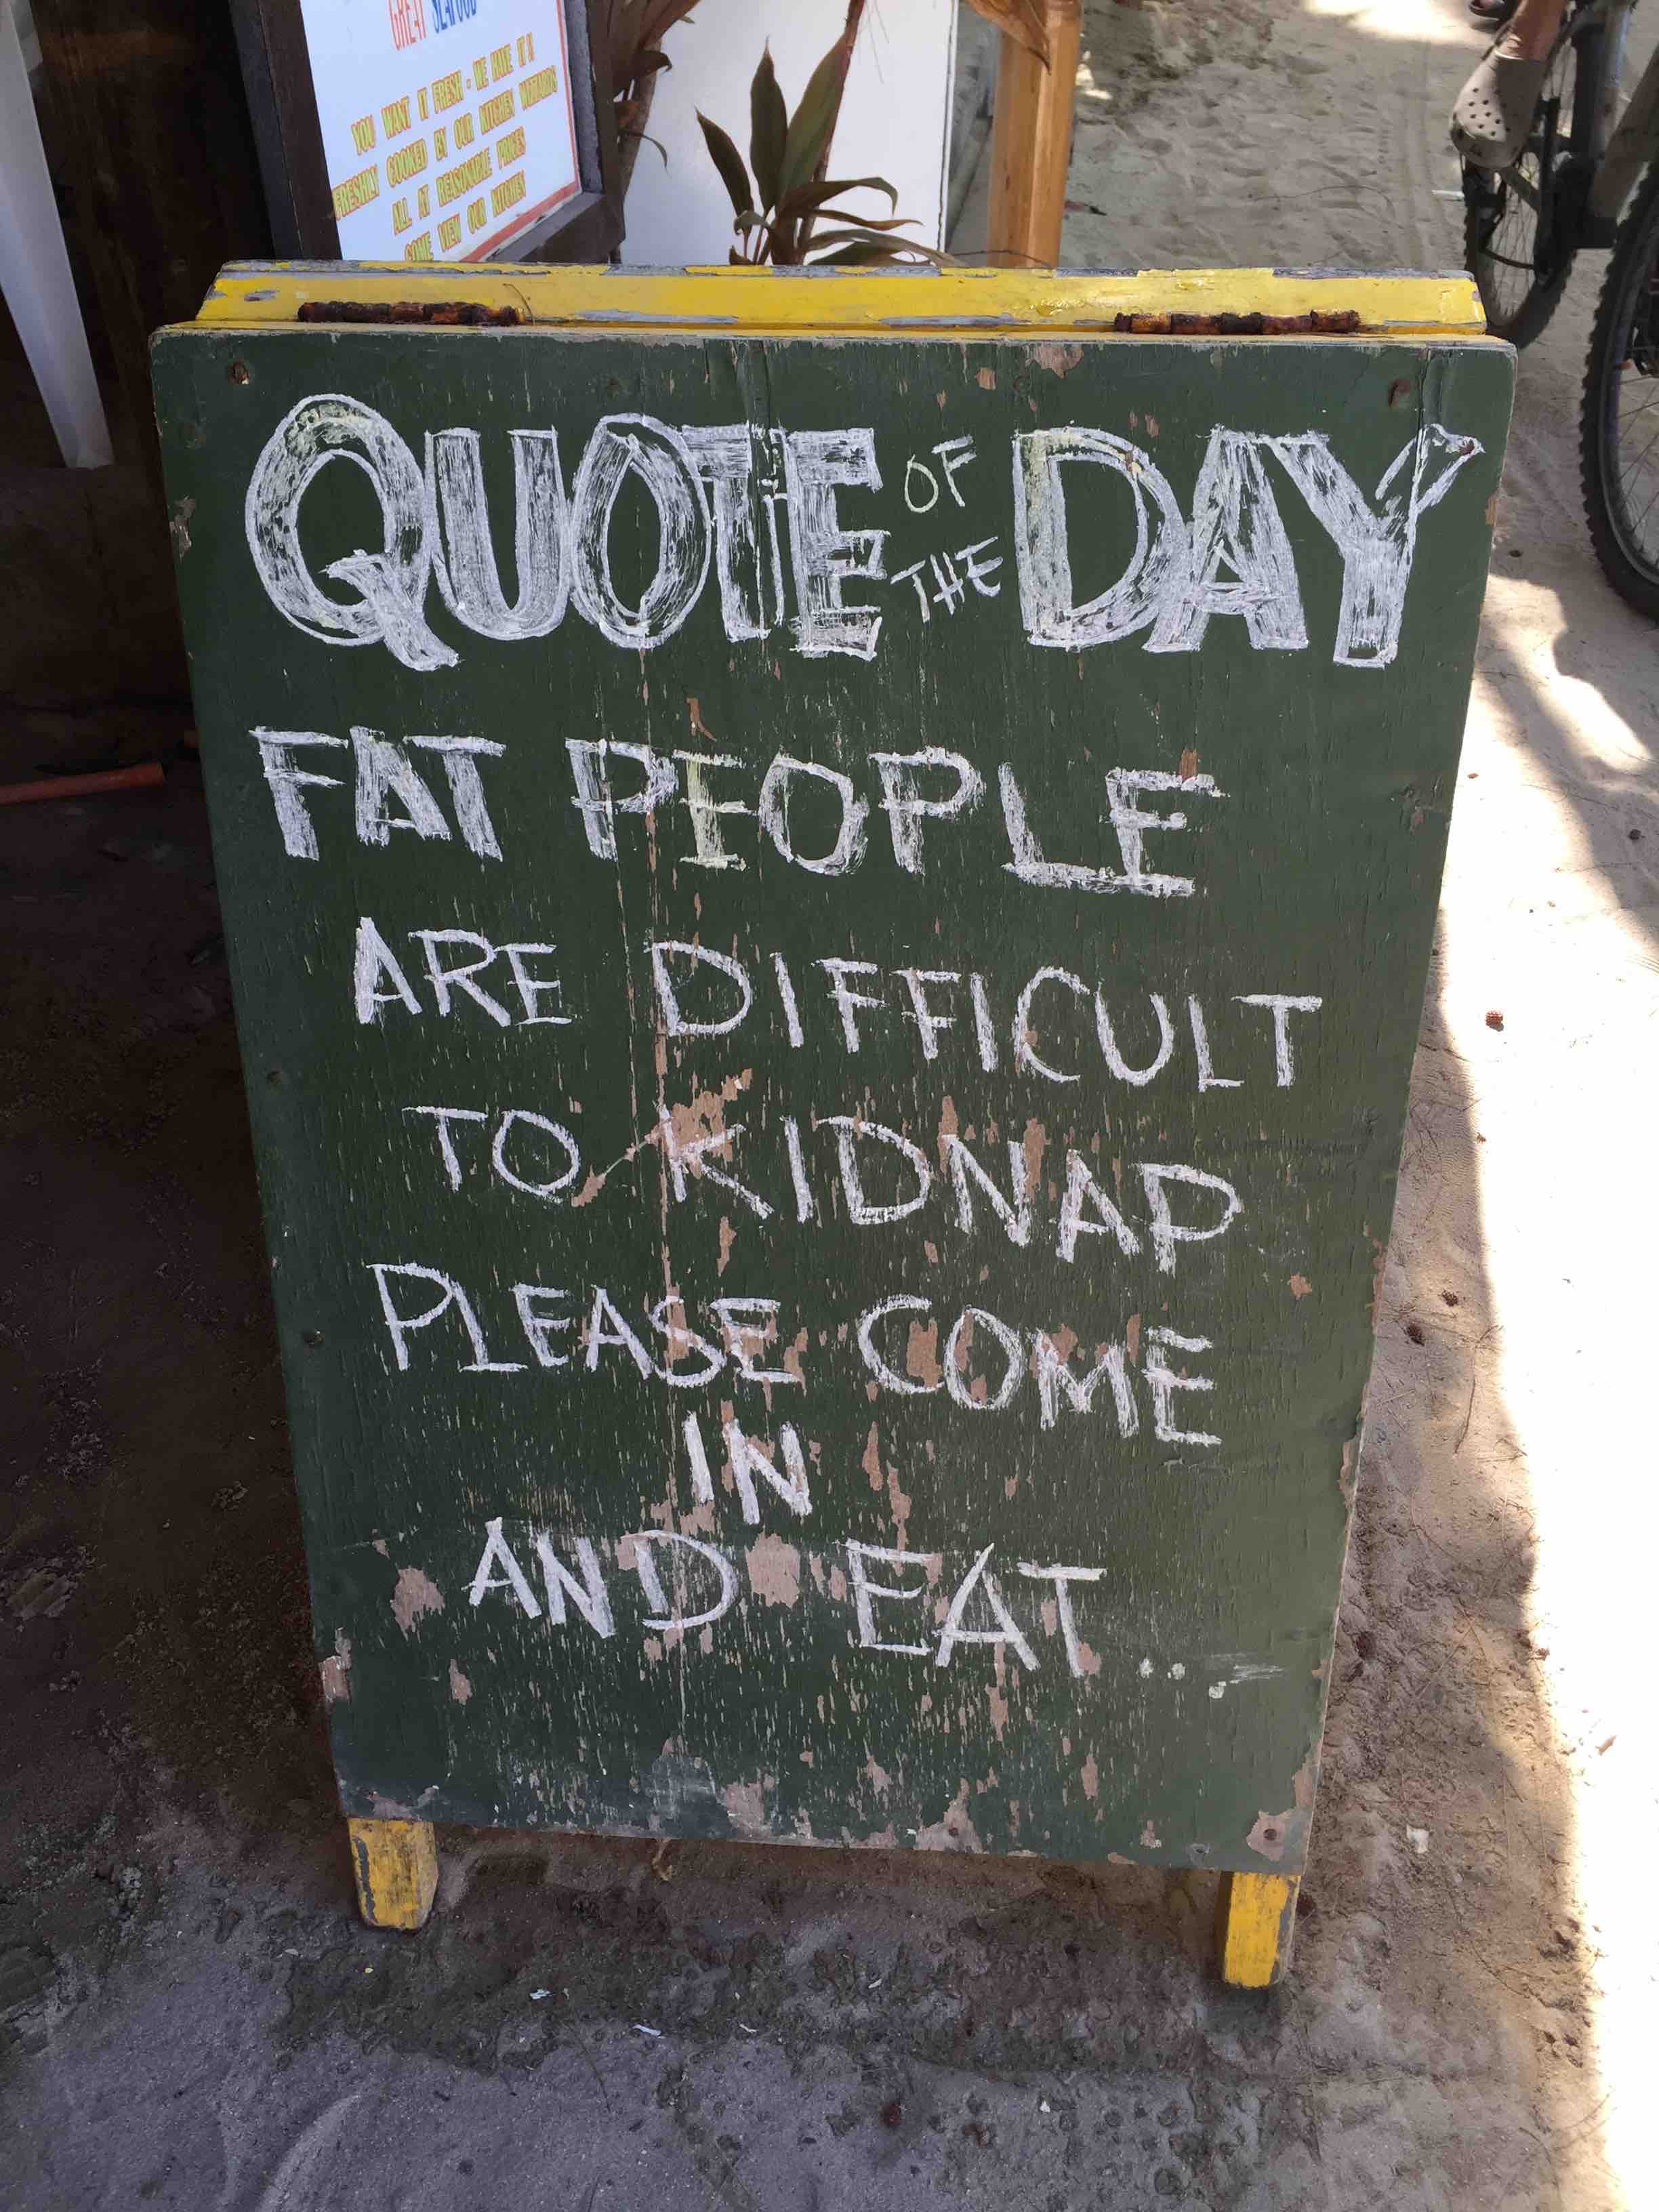 GREAT SEAFOOD
YOU WANT IT FRESH - WE HAVE IT!!
FRESHLY COOKED BY OUR KITCHEN WIZARDS
ALL AT REASONABLE PRICES
COME VIEW OUR KITCHEN
QUOTE OF THE DAY
FAT PEOPLE
ARE DIFFICULT
TO KIDNAP
PLEASE COME
IN
AND EAT..